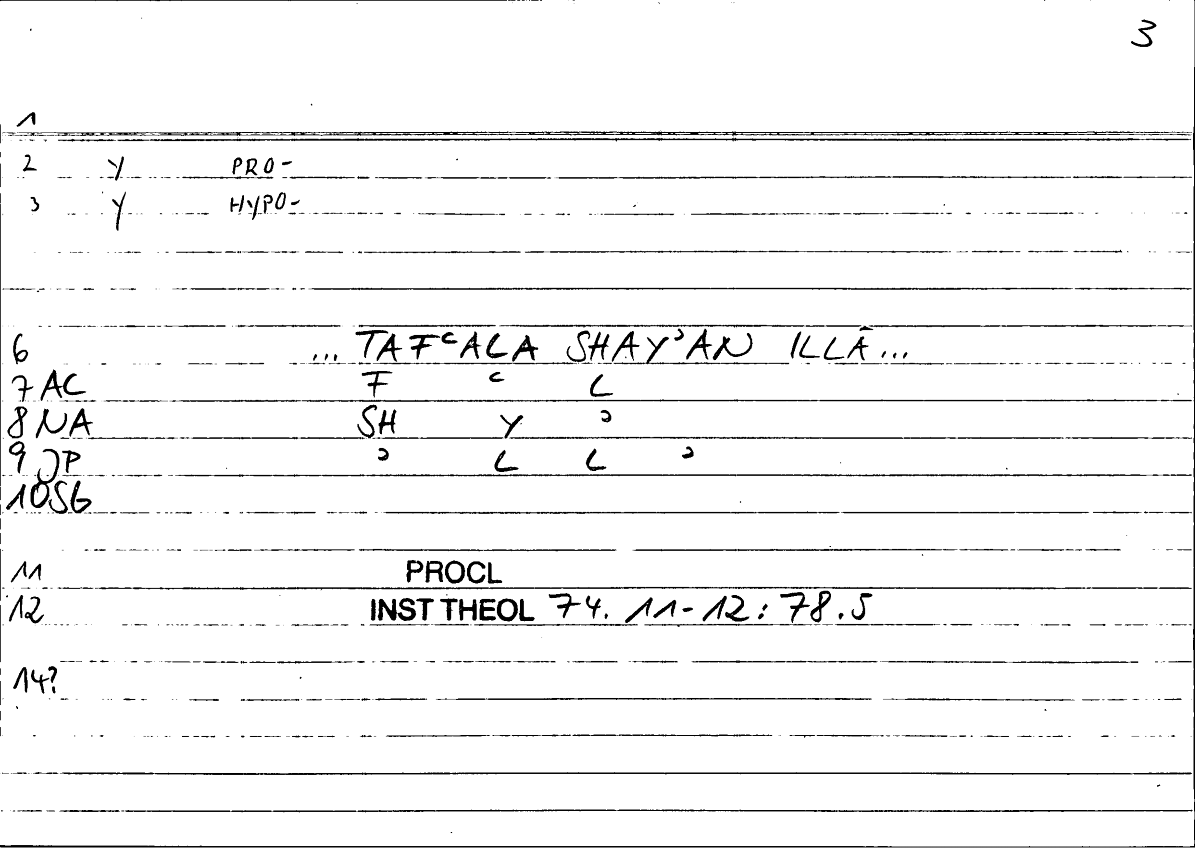 3
1
2 Y PRO-
3 Y HYPO-
6 ... TAFᶜALA SHAYᵓAN ILLĀ...
7 AC F ᶜ L
8 NA SH Y ᵓ
9 JP ᵓ L L ᵓ
10 SG
11 PROCL
12 INST THEOL 74. 11-12 : 78.5
14?